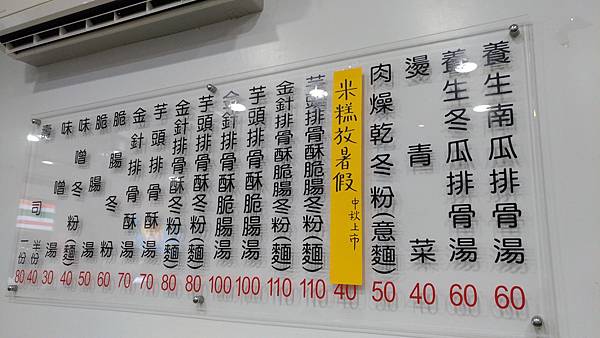 養生南瓜排骨湯 60
養生冬瓜排骨湯 60
燙青菜 40
肉燥乾冬粉(意麵) 50
米糕放暑假 中秋上市 40
芋頭排骨酥脆腸冬粉(麵) 110
金針排骨酥脆腸冬粉(麵) 110
芋頭排骨酥脆腸湯 100
金針排骨酥脆腸湯 100
芋頭排骨酥冬粉(麵) 80
金針排骨酥冬粉(麵) 80
芋頭排骨酥湯 70
金針排骨酥湯 70
脆腸冬粉 60
脆腸湯 50
味噌冬粉(麵) 40
味噌湯 30
壽司 半份 40
一份 80